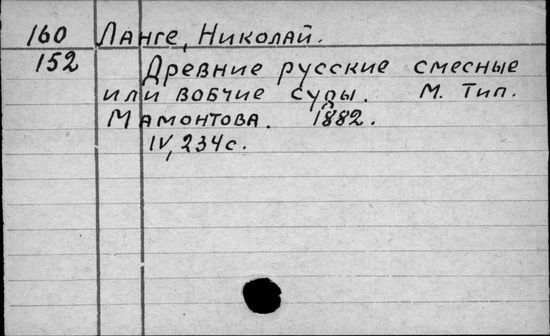 160 Ланге, Николай.
152 Древние русские смесные
или вобчие суды. М. Тип.
Мамонтова. 1882.
IV, 234с.